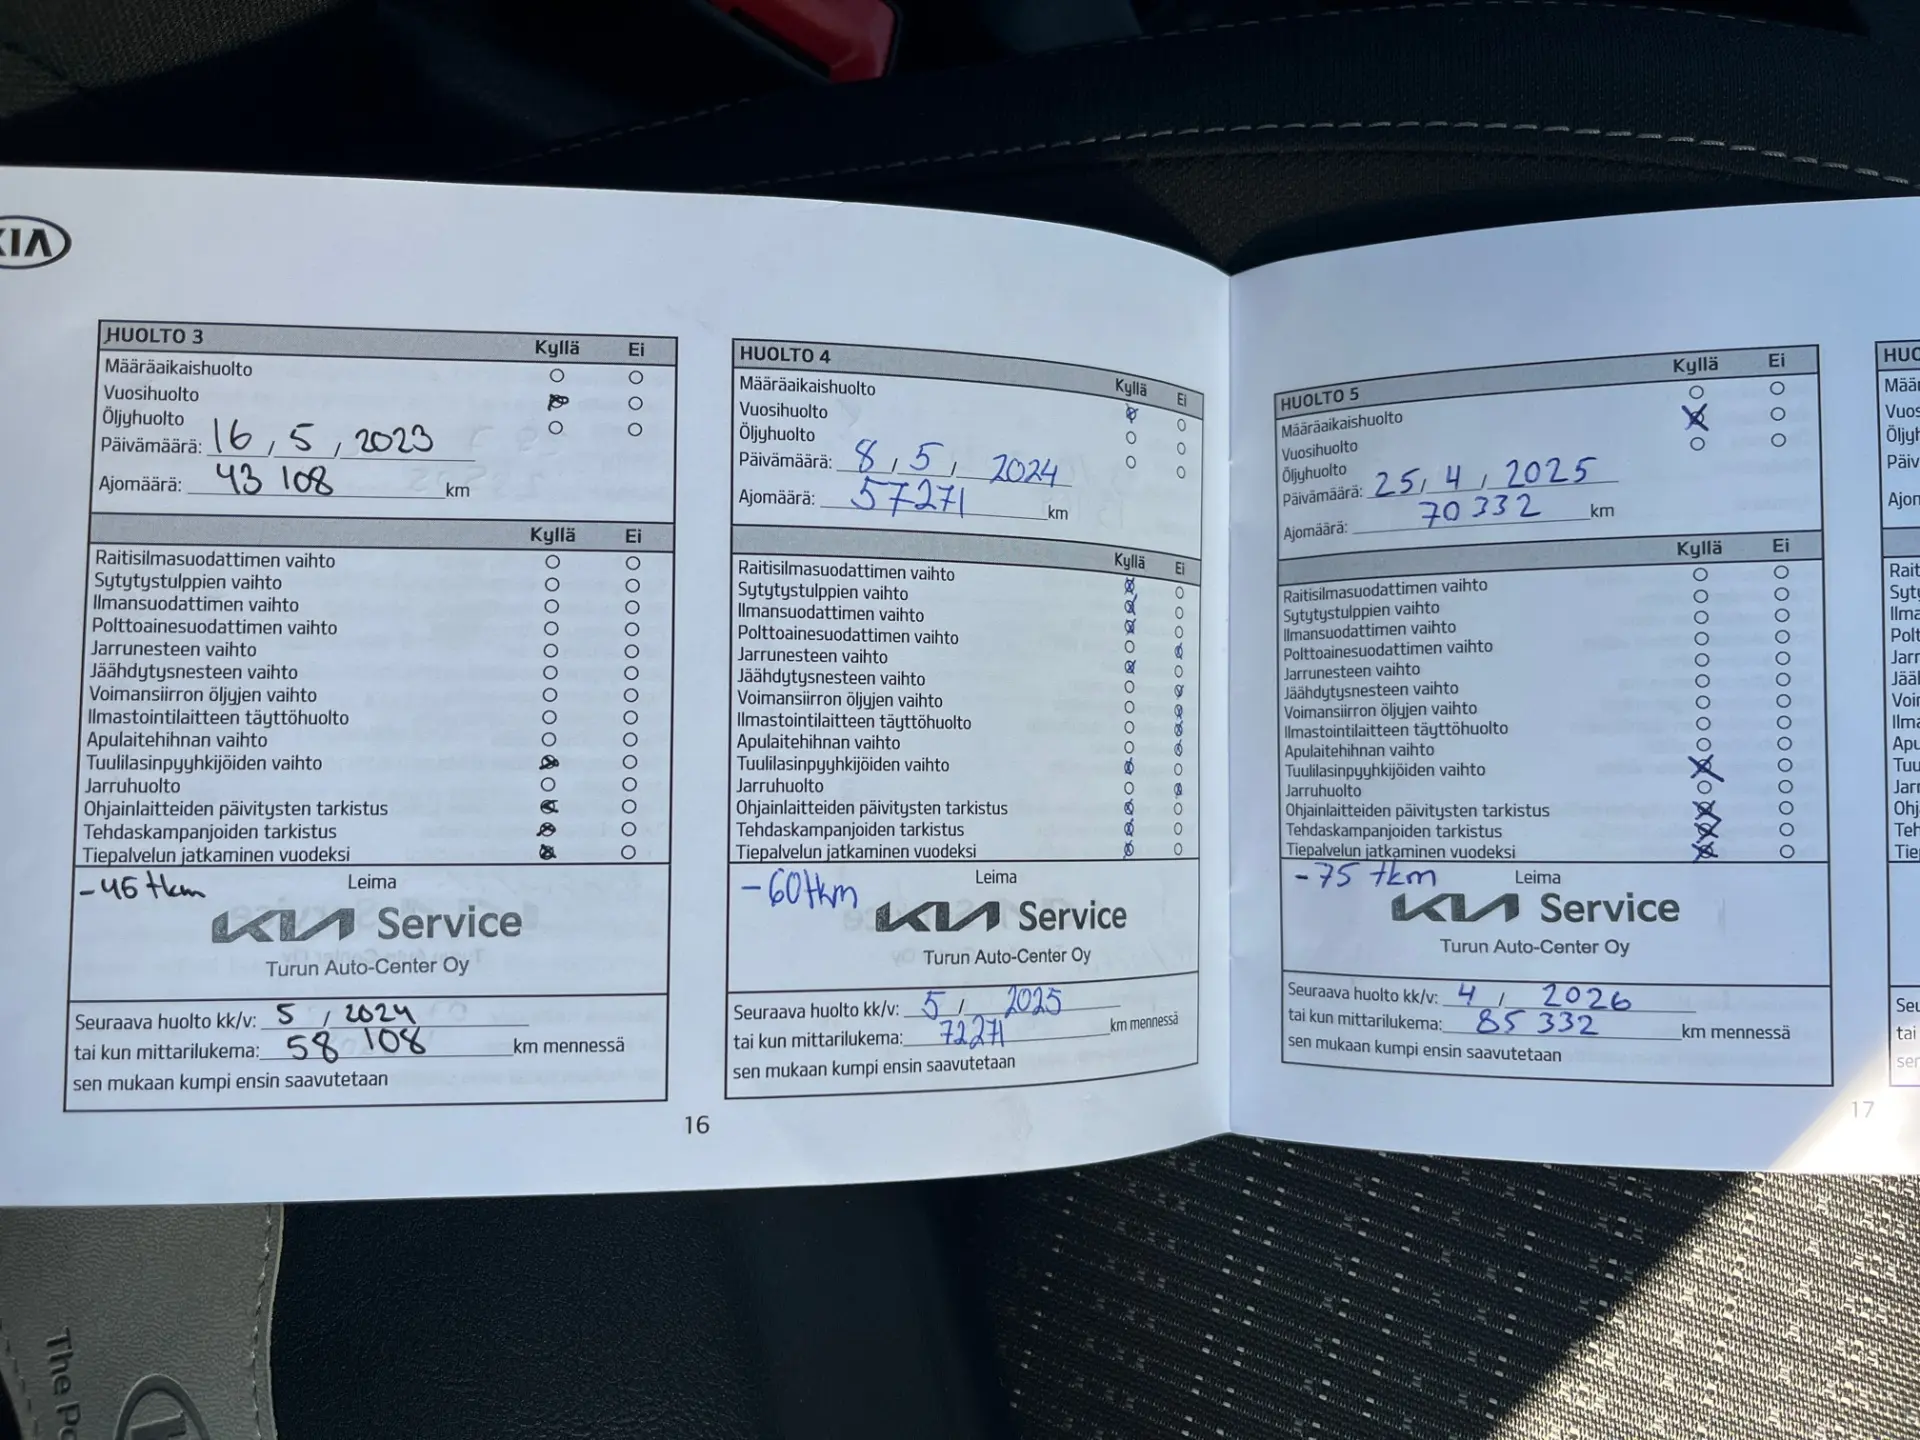 KIA
HUOLTO 3 Kyllä Ei
Määräaikaishuolto
Vuosihuolto
Öljyhuolto
Päivämäärä: 16, 5, 2023
Ajomäärä: 43 108 km
Kyllä Ei
Raitisilmasuodattimen vaihto
Sytytystulppien vaihto
Ilmansuodattimen vaihto
Polttoainesuodattimen vaihto
Jarrunesteen vaihto
Jäähdytysnesteen vaihto
Voimansiirron öljyjen vaihto
Ilmastointilaitteen täyttöhuolto
Apulaitehihnan vaihto
Tuulilasinpyyhkijöiden vaihto
Jarruhuolto
Ohjainlaitteiden päivitysten tarkistus
Tehdaskampanjoiden tarkistus
Tiepalvelun jatkaminen vuodeksi
-45 tkm Leima
KIA Service
Turun Auto-Center Oy
Seuraava huolto kk/v: 5 / 2024
tai kun mittarilukema: 58 108 km mennessä
sen mukaan kumpi ensin saavutetaan
16
HUOLTO 4 Kyllä Ei
Määräaikaishuolto
Vuosihuolto
Öljyhuolto
Päivämäärä: 8, 5, 2024
Ajomäärä: 57271 km
Kyllä Ei
Raitisilmasuodattimen vaihto
Sytytystulppien vaihto
Ilmansuodattimen vaihto
Polttoainesuodattimen vaihto
Jarrunesteen vaihto
Jäähdytysnesteen vaihto
Voimansiirron öljyjen vaihto
Ilmastointilaitteen täyttöhuolto
Apulaitehihnan vaihto
Tuulilasinpyyhkijöiden vaihto
Jarruhuolto
Ohjainlaitteiden päivitysten tarkistus
Tehdaskampanjoiden tarkistus
Tiepalvelun jatkaminen vuodeksi
-60tkm Leima
KIA Service
Turun Auto-Center Oy
Seuraava huolto kk/v: 5 / 2025
tai kun mittarilukema: 72271 km mennessä
sen mukaan kumpi ensin saavutetaan
HUOLTO 5 Kyllä Ei
Määräaikaishuolto
Vuosihuolto
Öljyhuolto
Päivämäärä: 25, 4, 2025
Ajomäärä: 70 332 km
Kyllä Ei
Raitisilmasuodattimen vaihto
Sytytystulppien vaihto
Ilmansuodattimen vaihto
Polttoainesuodattimen vaihto
Jarrunesteen vaihto
Jäähdytysnesteen vaihto
Voimansiirron öljyjen vaihto
Ilmastointilaitteen täyttöhuolto
Apulaitehihnan vaihto
Tuulilasinpyyhkijöiden vaihto
Jarruhuolto
Ohjainlaitteiden päivitysten tarkistus
Tehdaskampanjoiden tarkistus
Tiepalvelun jatkaminen vuodeksi
-75 tkm Leima
KIA Service
Turun Auto-Center Oy
Seuraava huolto kk/v: 4 / 2026
tai kun mittarilukema: 85 332 km mennessä
sen mukaan kumpi ensin saavutetaan
17
The